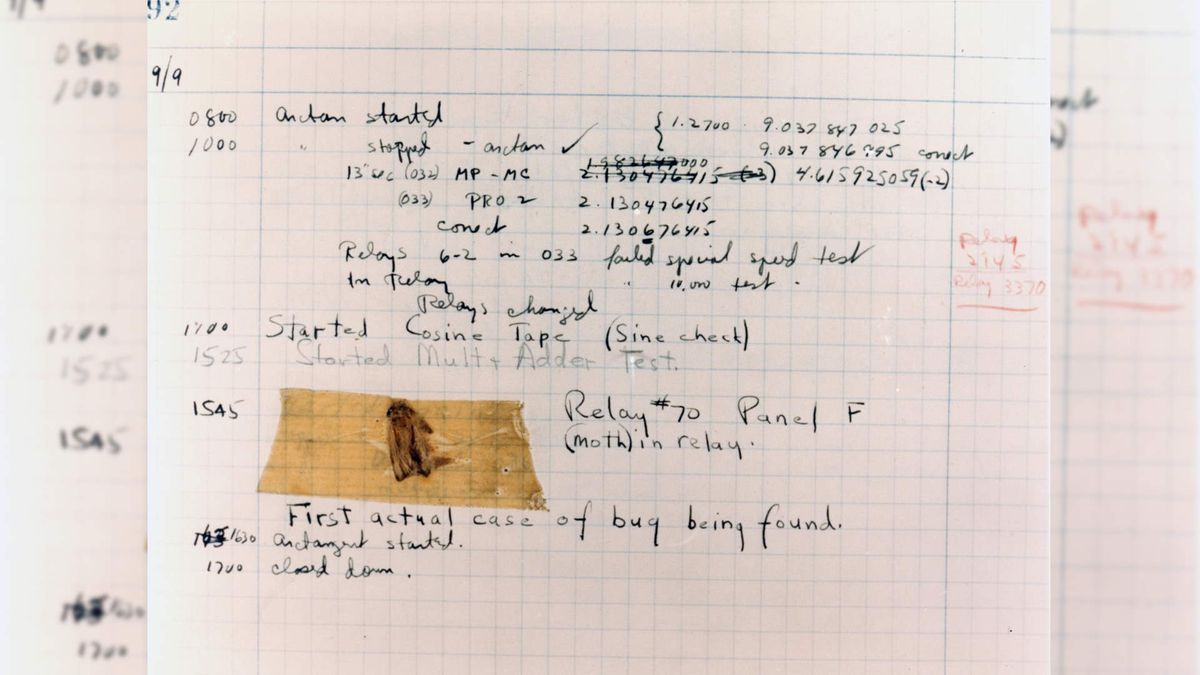 92
9/9
0800 arctan started { 1.2700 9.037 847 025
1000 " stopped - arctan ✓ 9.037 846 995 correct
13" sec (032) MP - MC 2.130476415 (-3) 4.615925059(-2)
(033) PRO 2 2.130476415
correct 2.130676415
Relays 6-2 in 033 failed special speed test
In Relay " 10,000 test .
Relays changed
Relay
2145
Relay 3370
1700 Started Cosine Tape (Sine check)
1525 Started Mult + Adder Test.
1545 Relay #70 Panel F
(moth) in relay.
First actual case of bug being found.
1630 arctangent started.
1700 closed down.